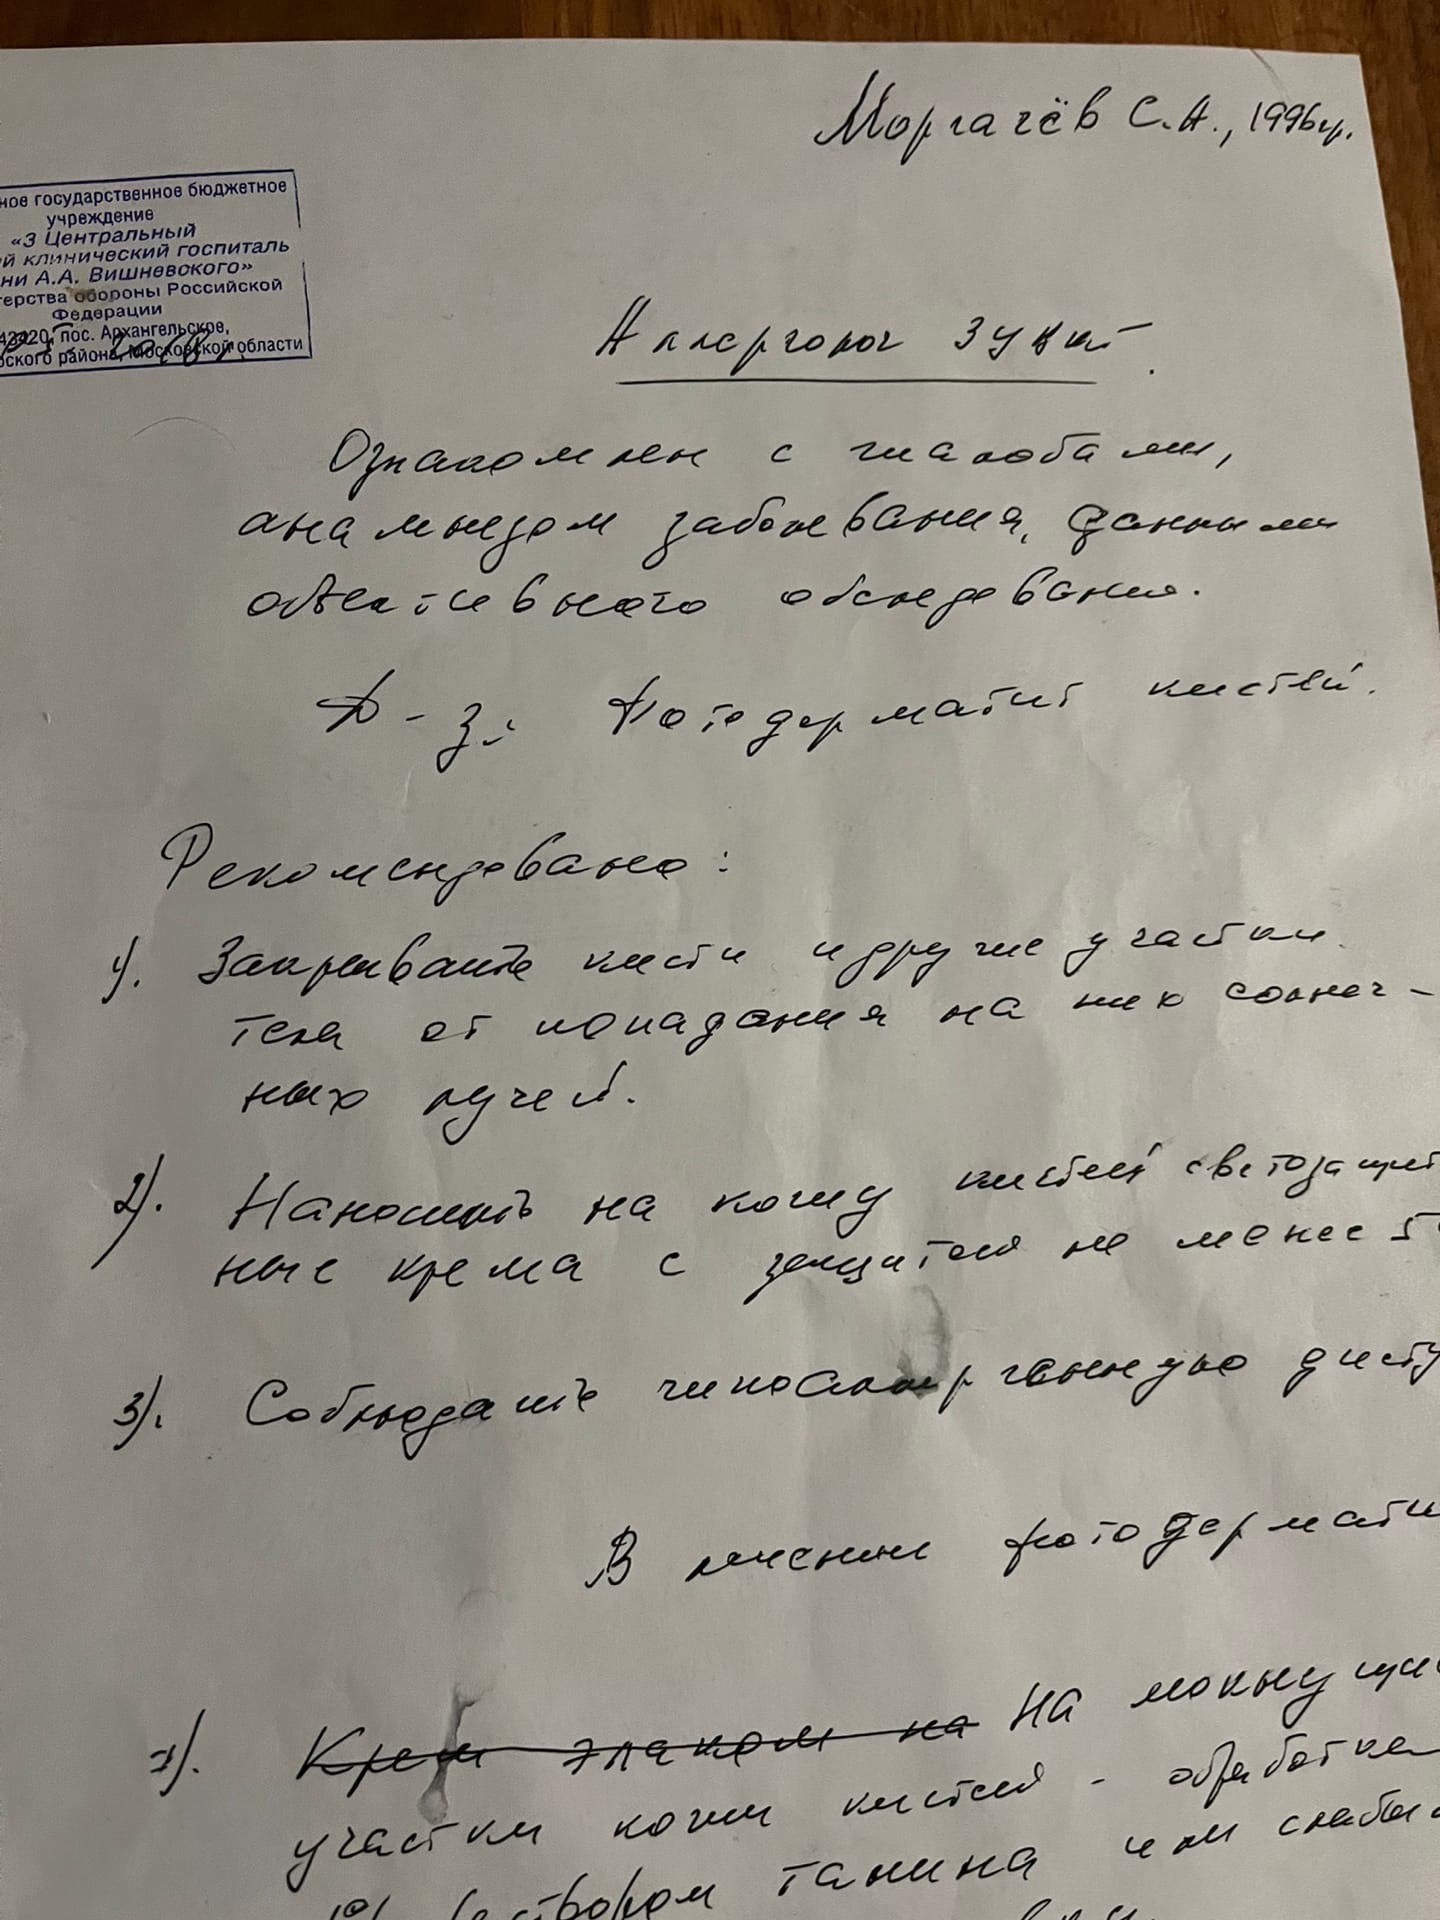 Моргачёв С.А., 1996гр.
ное государственное бюджетное
учреждение
«3 Центральный
й клинический госпиталь
ни А.А. Вишневского»
терства обороны Российской
Федерации
43420, пос. Архангельское,
рского района, Московской области
2018г.
Аллерголог ЗУКИТ.
Ознакомлен с жалобами,
анамнезом заболевания, данными
объективного обследования.
Д-з: Фотодерматит кистей.
Рекомендовано:
1). Закрывать кисти и другие участки
тела от попадания на них солнеч-
ных лучей.
2). Наносить на кожу кистей светозащит
ные крема с защитой не менее 5
3). Соблюдать гипоаллергенную диету
В лечении фотодермати
1). Крем элаком на На мокнущие
участки кожи кистей - обработка
раствором танина или слабым